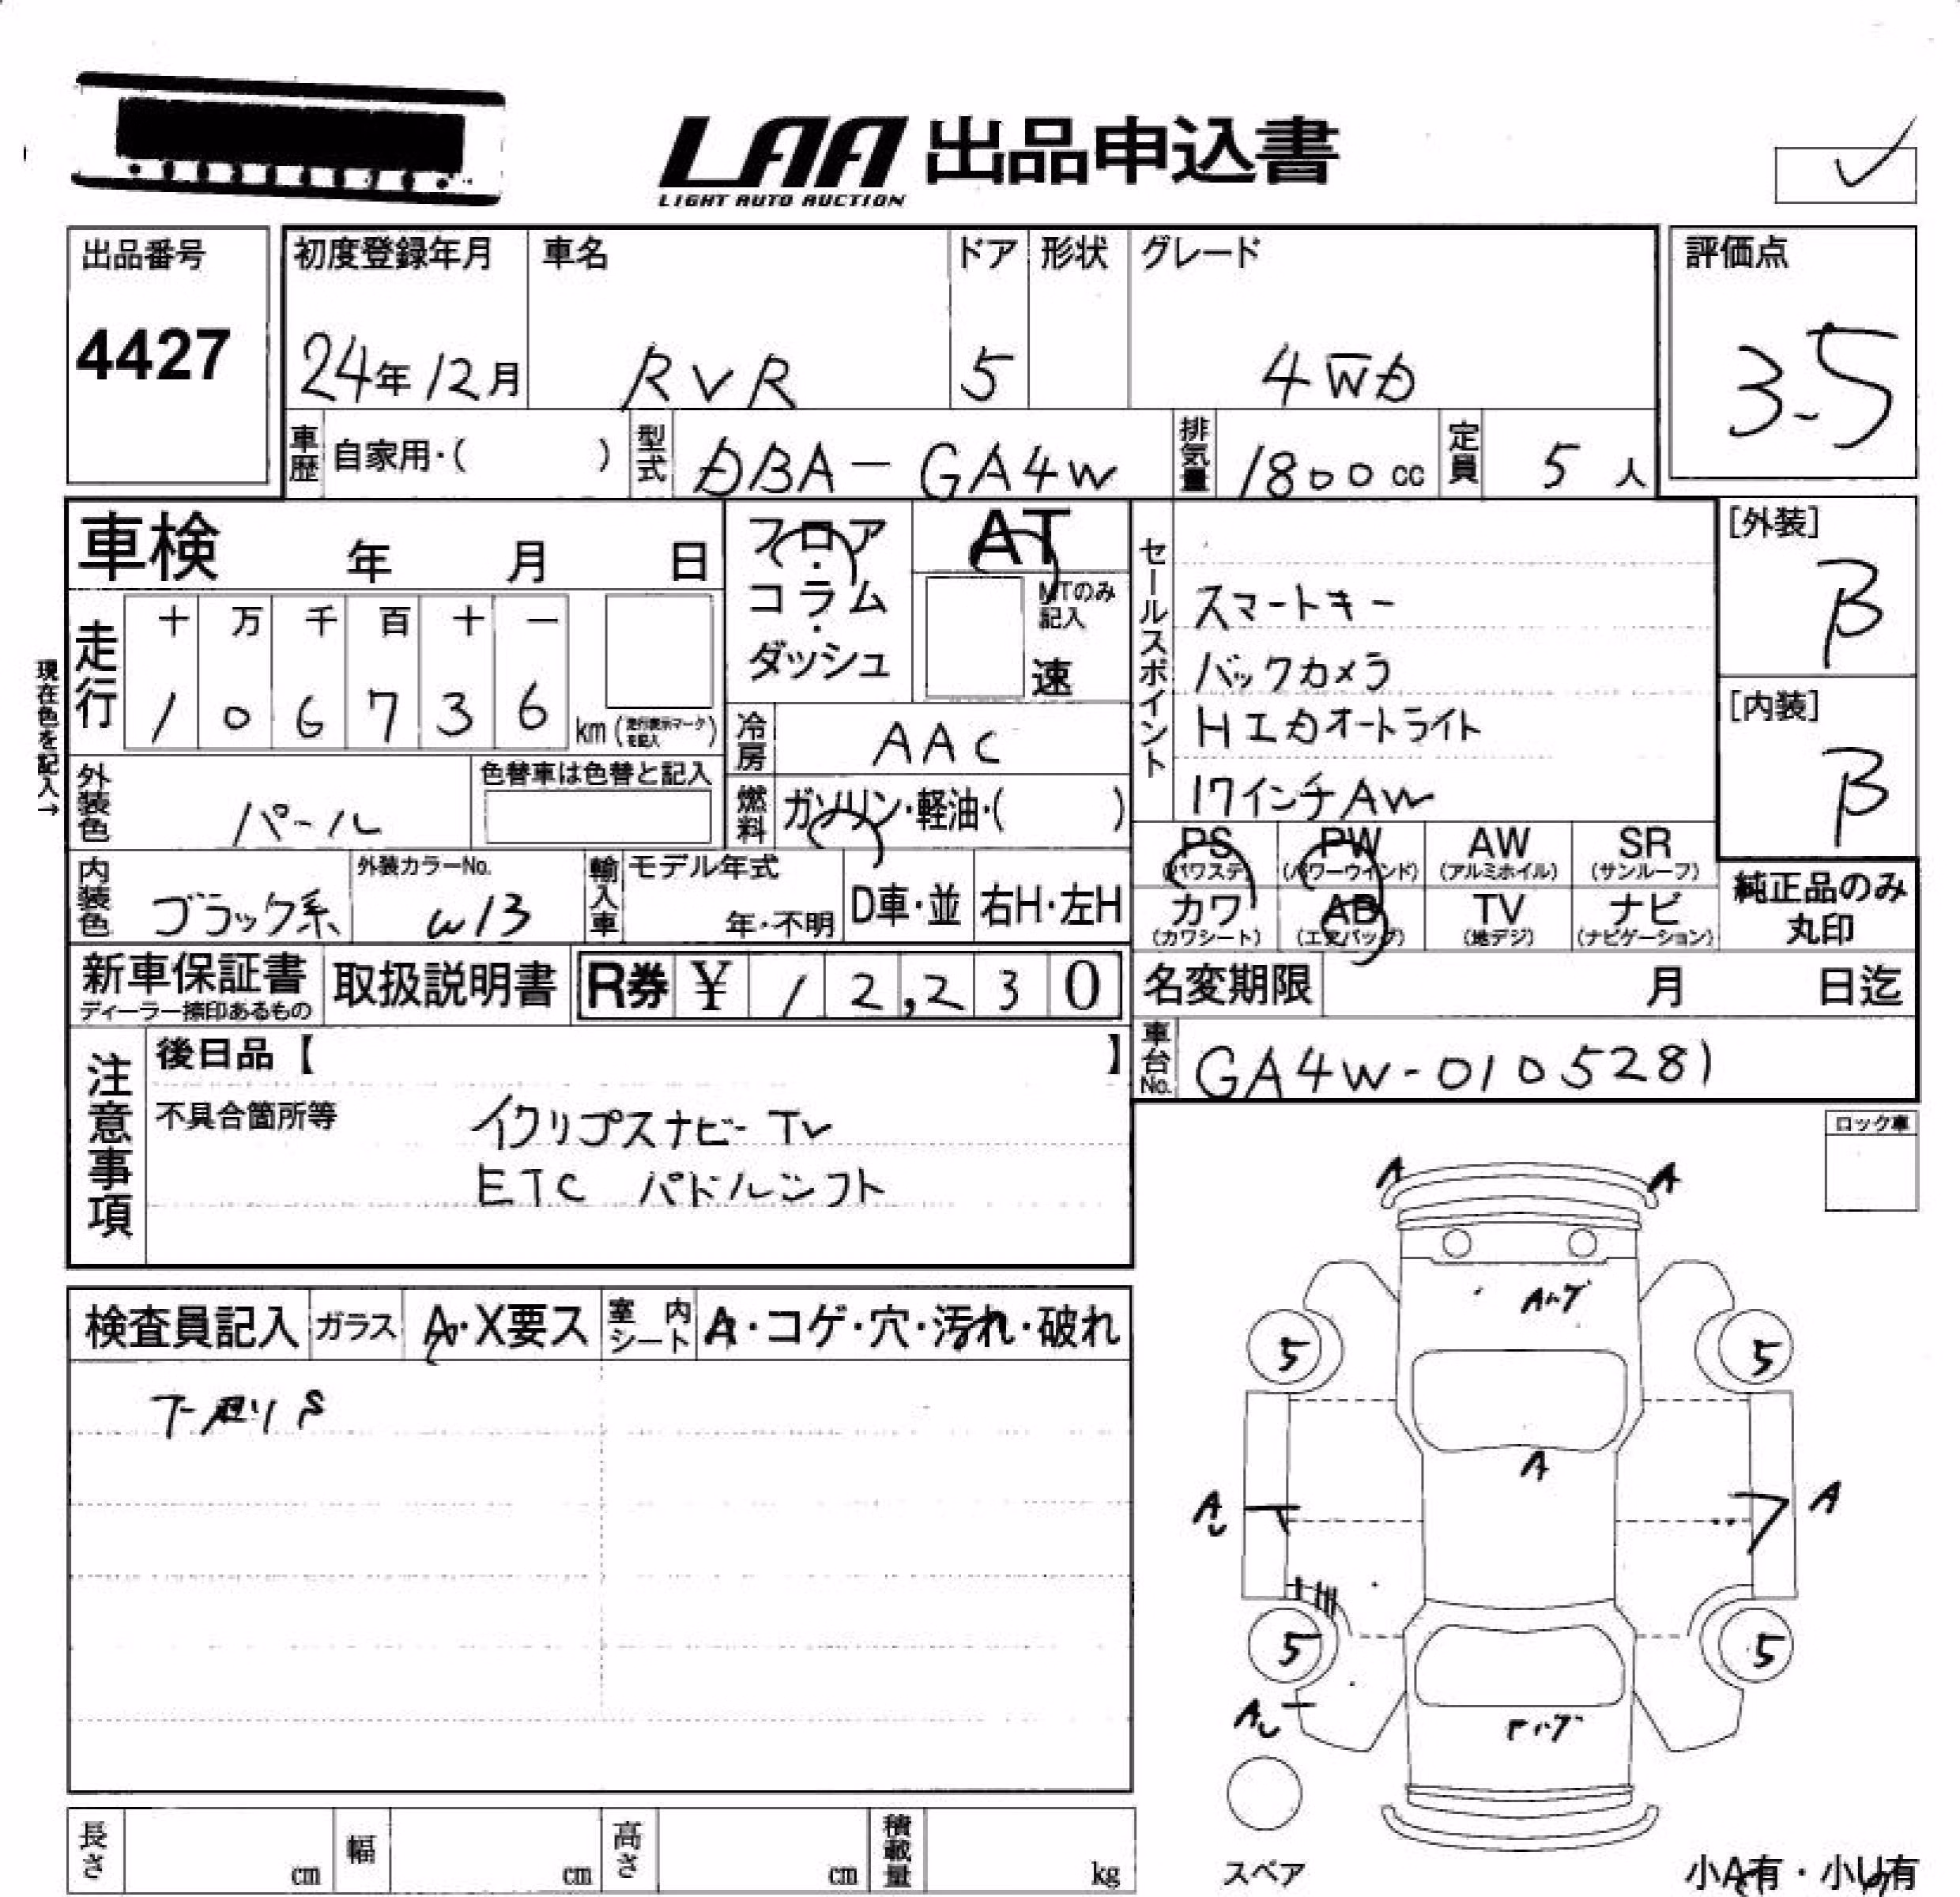 LAA 出品申込書
LIGHT AUTO AUCTION
出品番号
4427
初度登録年月
24年12月
車名
RVR
ドア
5
形状
グレード
4WD
評価点
3.5
車歴 自家用・( )
型式 DBA-GA4W
排気量 1800cc
定員 5人
車検 年 月 日
フロア・コラム・ダッシュ
AT
MTのみ記入
速
セールスポイント
スマートキー
バックカメラ
Hエカオートライト
17インチAW
[外装]
B
[内装]
B
現在色を記入→
走行
十 万 千 百 十 一
1 0 6 7 3 6 km (走行表示マークを記入)
冷房 AAC
外装色 パール
色替車は色替と記入
燃料 ガソリン・軽油・( )
内装色 ブラック系
外装カラーNo.
W13
輸入車
モデル年式
年・不明
D車・並
右H・左H
PS PW AW SR
(パワステ) (パワーウインド) (アルミホイル) (サンルーフ)
カワ AB TV ナビ
(カワシート) (エアバッグ) (地デジ) (ナビゲーション)
純正品のみ
丸印
新車保証書
ディーラー捺印あるもの
取扱説明書
R券 ¥ 12,230
名変期限 月 日迄
車台No. GA4W-0105281
注意事項
後日品【 】
不具合箇所等
イクリプスナビ-TV
ETC パドルシフト
ロック車
A A
検査員記入 ガラス A・X要ス 室内シート A・コゲ・穴・汚れ・破れ
5 5
A
A
5 5
スペア
長さ cm 幅 cm 高さ cm 積載量 kg
小A有・小U有